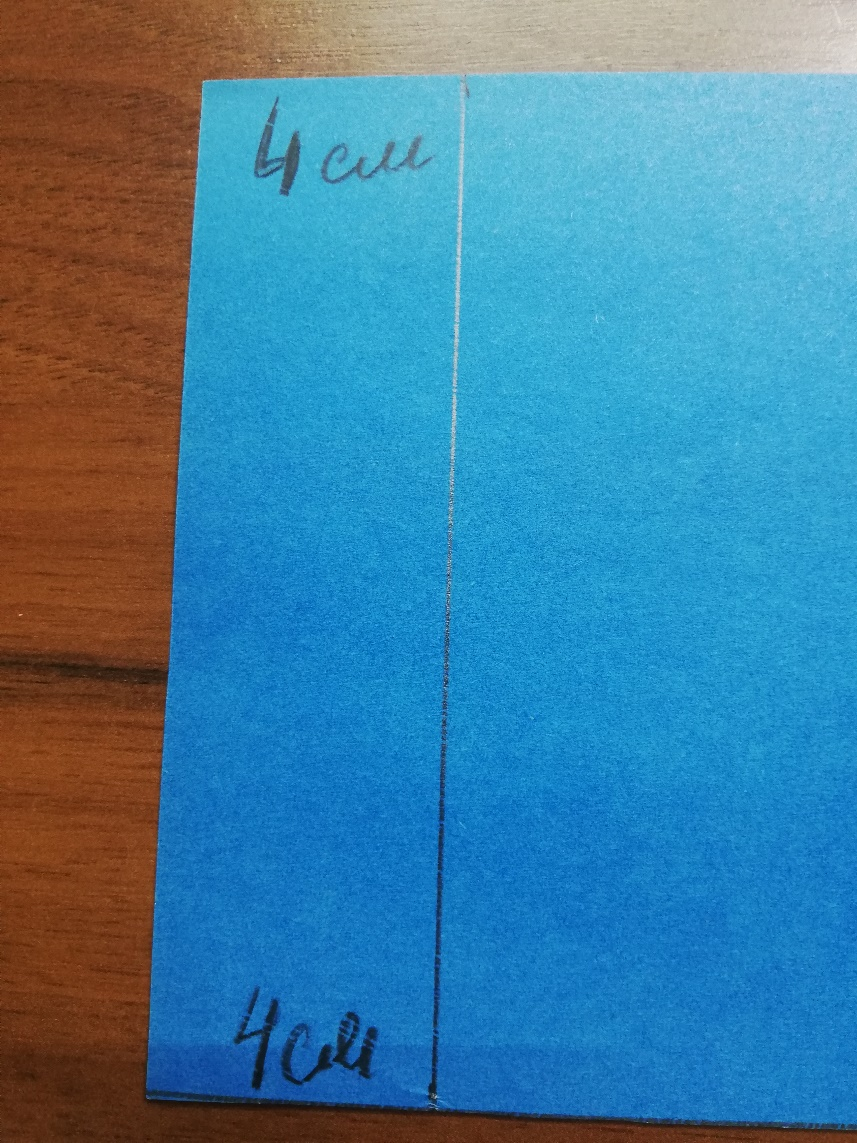 4 см
4 см